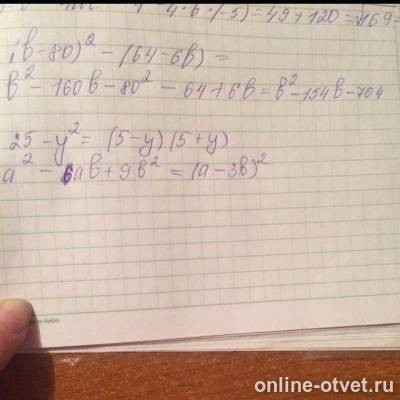 4·6·(-5)=49+120=169
(b-80)² - (64-6b) =
b² - 160b - 80² - 64 + 6b = b² - 154b - 704
25 - y² = (5-y)(5+y)
a² - 6ab + 9b² = (a-3b)²
online-otvet.ru